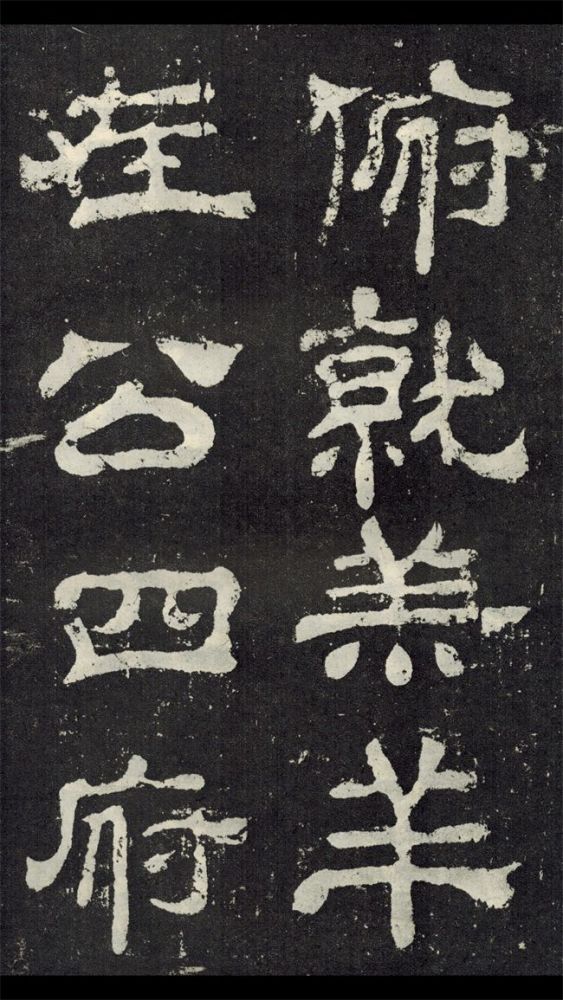 俯就羔羊
在公四府